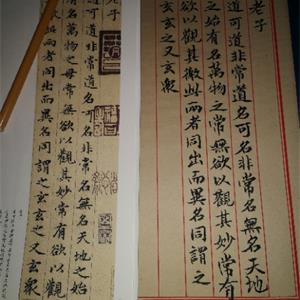 老子
道可道非常道名可名非常名無名天地
之始有名萬物之常無欲以觀其妙常有
欲以觀其徼此兩者同出而異名同謂之
玄玄之又玄衆
老子
道可道非常道名可名非常名無名天地之始
有名萬物之母常無欲以觀其妙常有欲以觀
其徼此兩者同出而異名同謂之玄玄之又玄衆